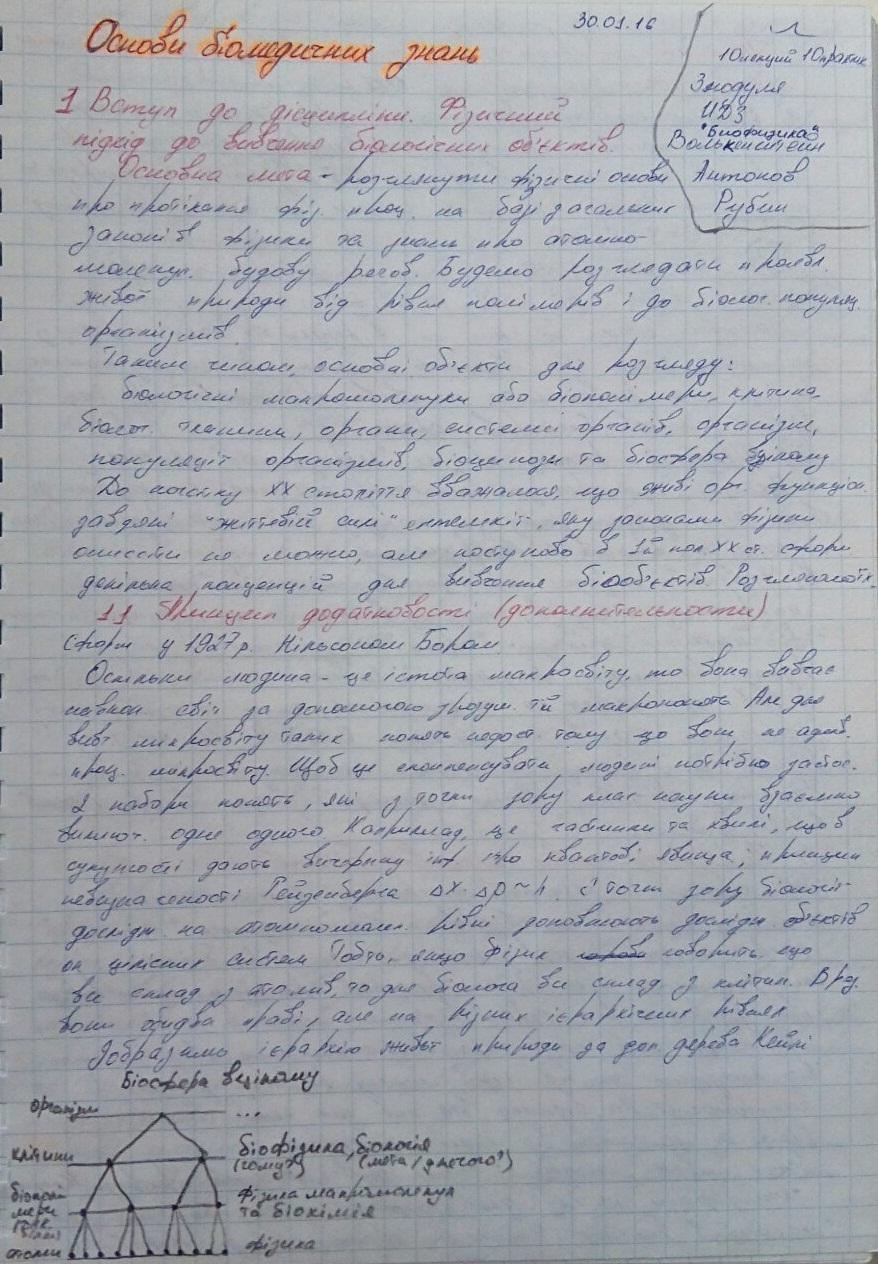 30.01.16
Основи біомедичних знань
10лекций 10практик
3модуля
ИДЗ
"Биофизика"
Волькенштейн
Антонов
Рубин
1 Вступ до дісципліни. Фізичний
підхід до вивчення біологічних об'єктів.
Основна мета - розглянути фізичні основи
про протікання фіз. проц. на базі загальних
законів фізики та знань про атомно-
молекул. будову речов. Будемо розглядати проявл.
живої природи від рівня полімерів і до біолог. популяц.
організмів.
Таким чином, основні об'єкти для розгляду:
біологічні макромолекули або біополімери, клітина,
біолог. тканини, органи, системи органів, організм,
популяції організмів, біоцинози та біосфера вцілому
До початку XX століття вважалося, що живі орг. функціон.
завдяки "життєвій силі", яку законами фізики
описати не можно, але поступово в 1й пол. XX ст. сформ
декілька концепцій для вивчення біооб'єктів. Розглянемо їх.
1.1 Принцип додатковості (дополнительности)
Сформ у 1927р. Нільсоном Бором
Оскільки людина - це істота макросвіту, то вона вивчає
навкол. світ за допомогою зрозум. їй макропонять Але для
вивч микросвіту таких понять недост. тому що вони не адекв.
проц. микросвіту. Щоб це скомпенсувати людині потрібно застос.
2 набори понять, які з точки зору клас науки взаємно
виключ. одне одного Наприклад, це частинки та хвилі, що в
сукупності дають вичерпну інф про квантові явища; принцип
невизначеності Гейзенберга Δx·Δp~h. З точки зору біології
дослідж. на атомномолек. рівні доповнюють дослідж. об'єктів
як цілісних систем Тобто, якщо фізик говорить що
все склад з атомів, то для біолога все склад з клітин. В рез.
вони обидва праві, але на різних ієрархічних рівнях
Зобразимо ієрархію живої природи за доп дерева Кейлі
Біосфера вцілому
організм ...
клітини біофізика, біологія
(чому?) (мета/для чого?)
біополі
мери фізика макромолекул
та біохімія
атоми фізика